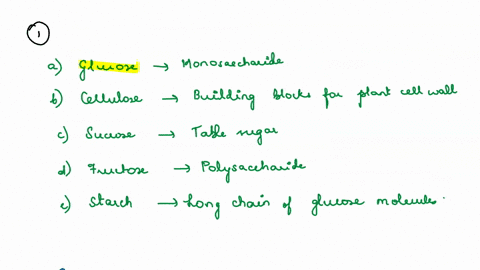 1
a) Glucose → Monosaccharide
b) Cellulose → Building blocks for plant cell wall
c) Sucrose → Table sugar
d) Fructose → Polysaccharide
e) Starch → Long chain of glucose molecules.